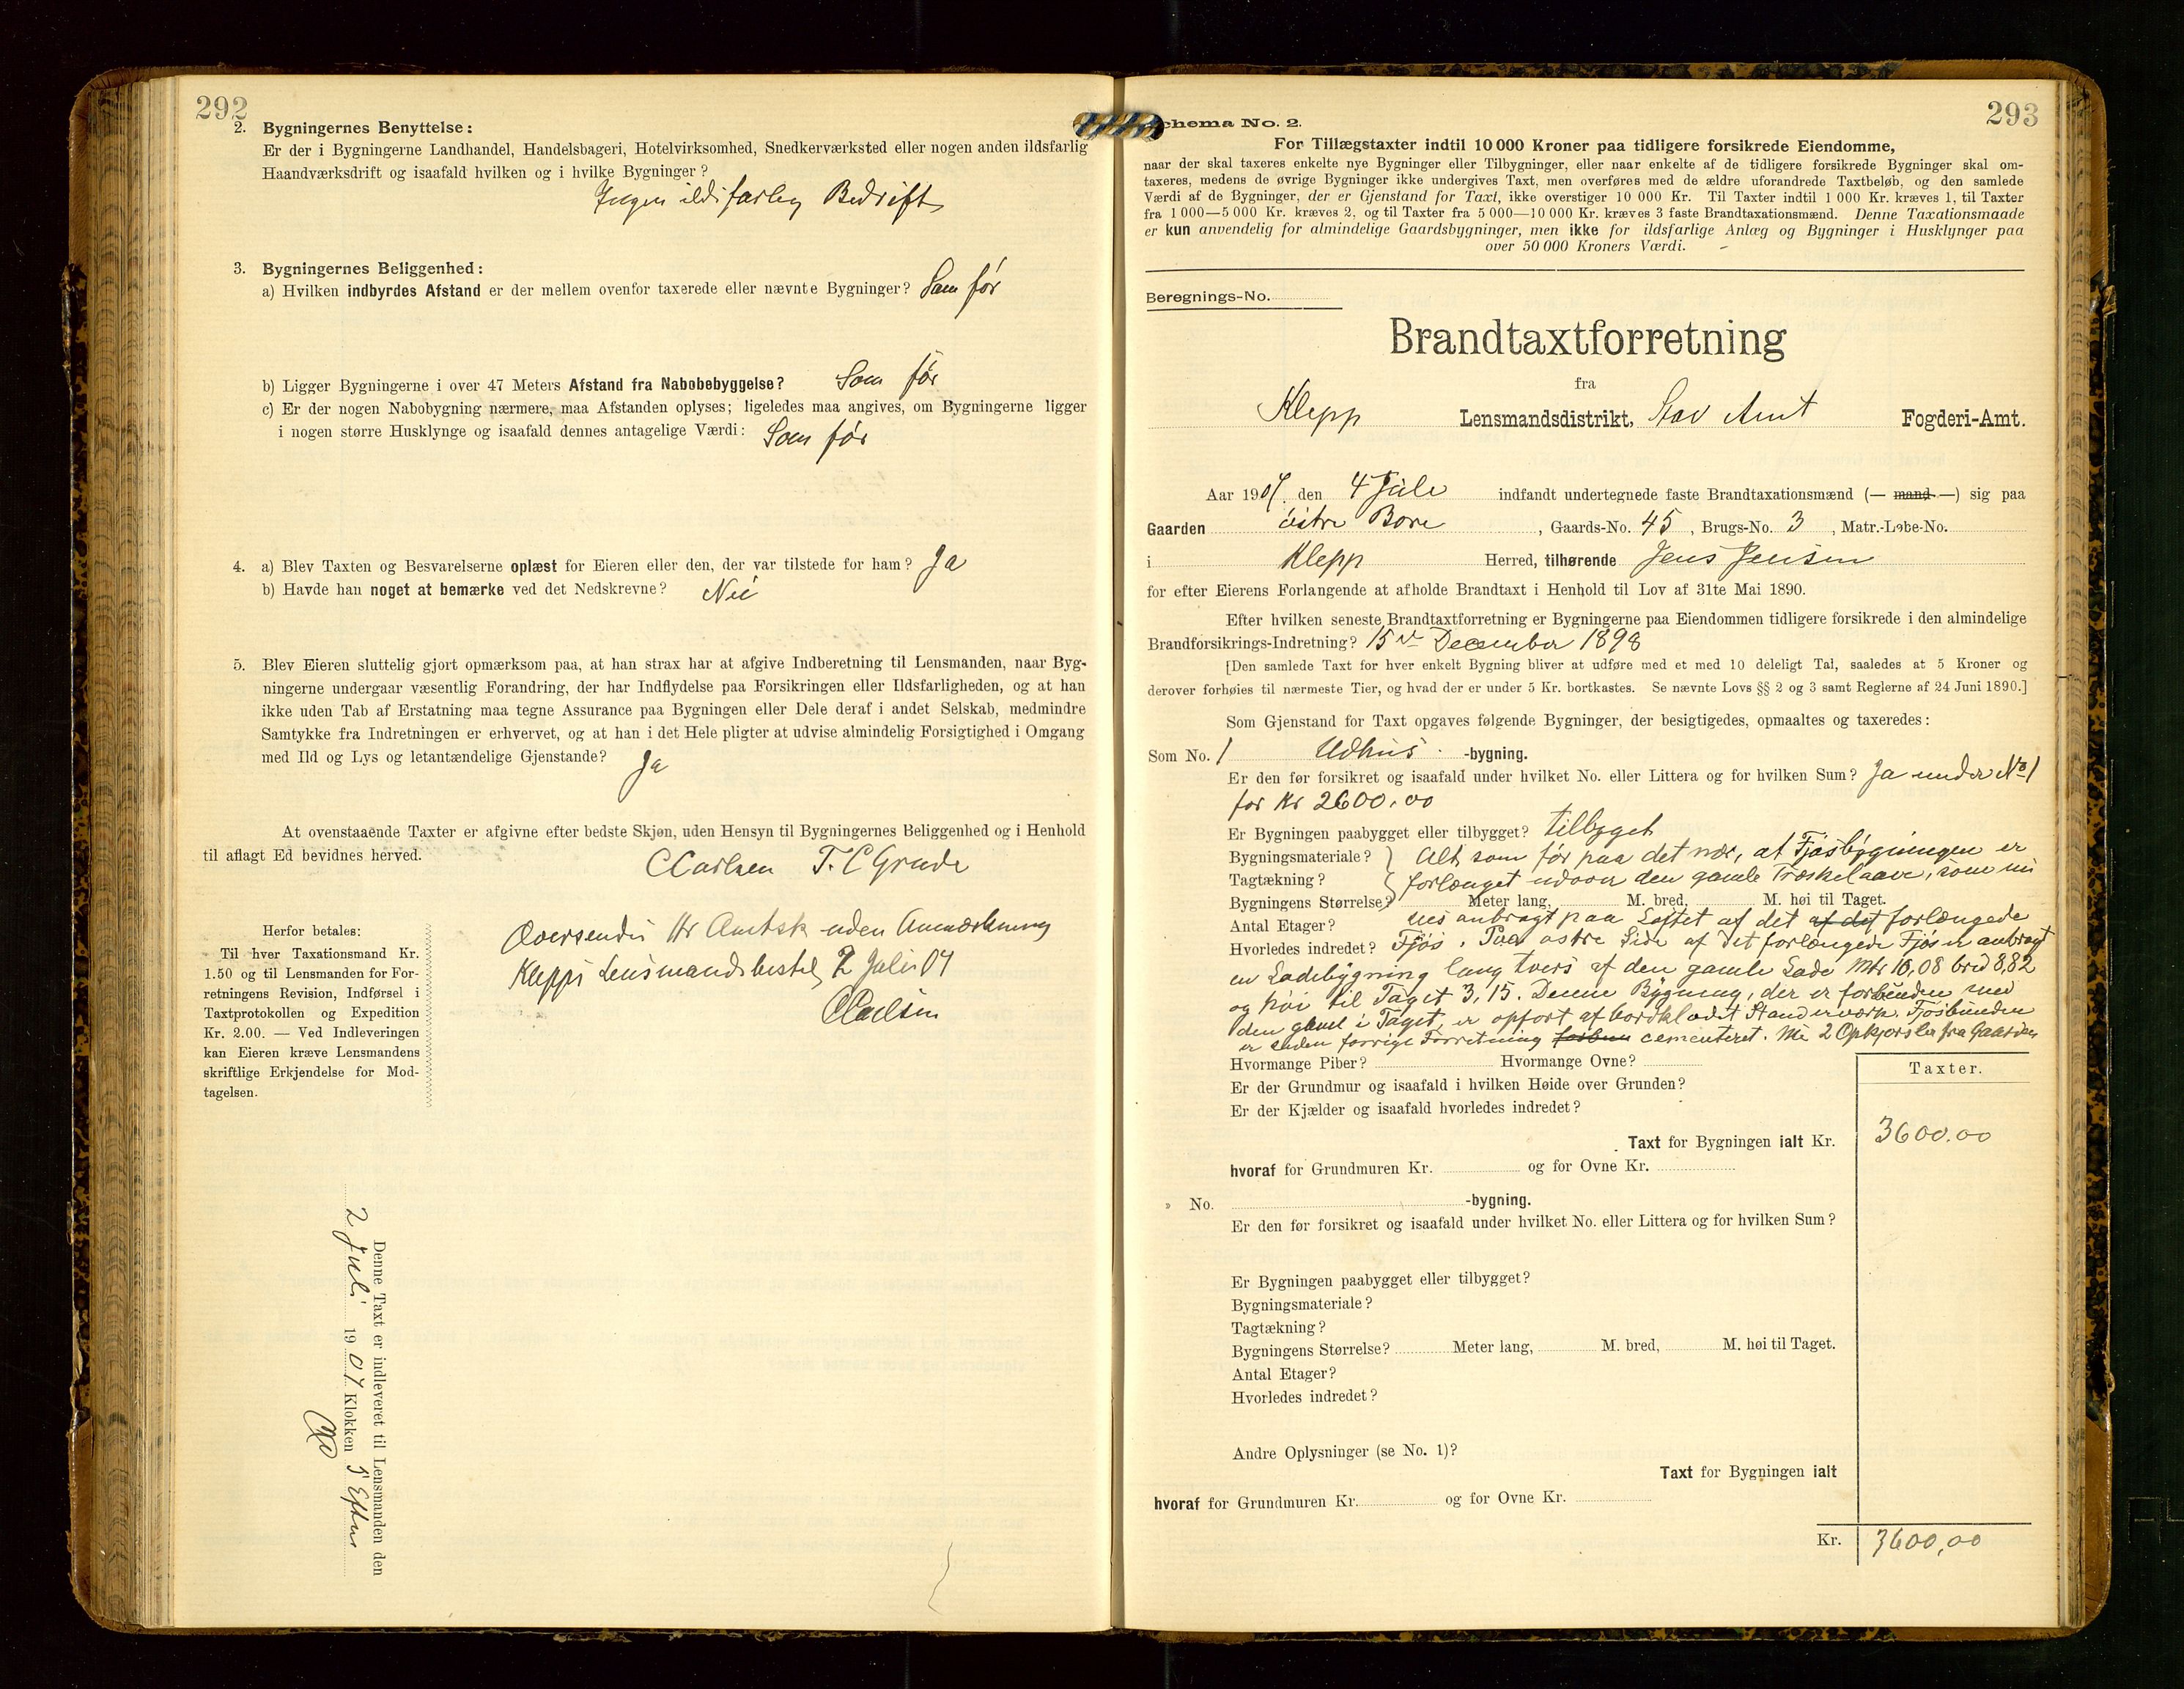 292
2. Bygningernes Benyttelse:
Er der i Bygningerne Landhandel, Handelsbageri, Hotelvirksomhed, Snedkerværksted eller nogen anden ildsfarlig
Haandværksdrift og isaafald hvilken og i hvilke Bygninger?
Ingen ildsfarlig Bedrift
3. Bygningernes Beliggenhed:
a) Hvilken indbyrdes Afstand er der mellem ovenfor taxerede eller nævnte Bygninger? Som før
b) Ligger Bygningerne i over 47 Meters Afstand fra Nabobebyggelse? Som før
c) Er der nogen Nabobygning nærmere, maa Afstanden oplyses; ligeledes maa angives, om Bygningerne ligger
i nogen større Husklynge og isaafald dennes antagelige Værdi: Som før
4. a) Blev Taxten og Besvarelserne oplæst for Eieren eller den, der var tilstede for ham? Ja
b) Havde han noget at bemærke ved det Nedskrevne? Nei
5. Blev Eieren sluttelig gjort opmærksom paa, at han strax har at afgive Indberetning til Lensmanden, naar Byg-
ningerne undergaar væsentlig Forandring, der har Indflydelse paa Forsikringen eller Ildsfarligheden, og at han
ikke uden Tab af Erstatning maa tegne Assurance paa Bygningen eller Dele deraf i andet Selskab, medmindre
Samtykke fra Indretningen er erhvervet, og at han i det Hele pligter at udvise almindelig Forsigtighed i Omgang
med Ild og Lys og letantændelige Gjenstande? Ja
At ovenstaaënde Taxter er afgivne efter bedste Skjøn, uden Hensyn til Bygningernes Beliggenhed og i Henhold
til aflagt Ed bevidnes herved.
C Carlsen T. C Grude
Herfor betales:
Til hver Taxationsmand Kr.
1.50 og til Lensmanden for For-
retningens Revision, Indførsel i
Taxtprotokollen og Expedition
Kr. 2.00. — Ved Indleveringen
kan Eieren kræve Lensmandens
skriftlige Erkjendelse for Mod-
tagelsen.
Oversendes Hr Amtsk uden Anmærkning
Klepps Lensmandsbestil 2 Juli 07
C Carlsen
Denne Taxt er indleveret til Lensmanden den
2 Juli 1907 Klokken 5 Eftm
293
Schema No. 2.
For Tillægstaxter indtil 10 000 Kroner paa tidligere forsikrede Eiendomme,
naar der skal taxeres enkelte nye Bygninger eller Tilbygninger, eller naar enkelte af de tidligere forsikrede Bygninger skal om-
taxeres, medens de øvrige Bygninger ikke undergives Taxt, men overføres med de ældre uforandrede Taxtbeløb, og den samlede
Værdi af de Bygninger, der er Gjenstand for Taxt, ikke overstiger 10 000 Kr. Til Taxter indtil 1 000 Kr. kræves 1, til Taxter
fra 1 000—5 000 Kr. kræves 2, og til Taxter fra 5 000—10 000 Kr. kræves 3 faste Brandtaxationsmænd. Denne Taxationsmaade
er kun anvendelig for almindelige Gaardsbygninger, men ikke for ildsfarlige Anlæg og Bygninger i Husklynger paa
over 50 000 Kroners Værdi.
Beregnings-No.
Brandtaxtforretning
fra
Klepp Lensmandsdistrikt, Stav Amt Fogderi-Amt.
Aar 1907 den 4 Juli indfandt undertegnede faste Brandtaxationsmænd (— mand —) sig paa
Gaarden østre Bore, Gaards-No. 45, Brugs-No. 3, Matr.-Løbe-No.
i Klepp Herred, tilhørende Jens Jensen
for efter Eierens Forlangende at afholde Brandtaxt i Henhold til Lov af 31te Mai 1890.
Efter hvilken seneste Brandtaxtforretning er Bygningerne paa Eiendommen tidligere forsikrede i den almindelige
Brandforsikrings-Indretning? 15de December 1898
[Den samlede Taxt for hver enkelt Bygning bliver at udføre med et med 10 deleligt Tal, saaledes at 5 Kroner og
derover forhøies til nærmeste Tier, og hvad der er under 5 Kr. bortkastes. Se nævnte Lovs §§ 2 og 3 samt Reglerne af 24 Juni 1890.]
Som Gjenstand for Taxt opgaves følgende Bygninger, der besigtigedes, opmaaltes og taxeredes:
Som No. 1 Udhus -bygning.
Er den før forsikret og isaafald under hvilket No. eller Littera og for hvilken Sum? Ja under No 1
for Kr 2600.00
Er Bygningen paabygget eller tilbygget? tilbyget
Bygningsmateriale? Alt som før paa det nær, at Fjøsbygningen er
Tagtækning? forlænget udover den gamle Træskelaave, som nu
Bygningens Størrelse? Meter lang, M. bred, M. høi til Taget.
Antal Etager? anbragt paa Loftet af det af det forlængede
Hvorledes indredet? Fjøs. Paa østre Side af det forlængede Fjøs er anbragt
en Ladebygning lang tvers af den gamle Lade Mtr 10,08 bred 8,82
og høi til Taget 3,15. Denne Bygning, der er forbunden med
den gamle i Taget, er opført af bordklædt Standerværk. Fjøsbunden
er siden forrige Forretning cementeret. 2 Opkjørsler fra Gaarden
Hvormange Piber? Hvormange Ovne?
Er der Grundmur og isaafald i hvilken Høide over Grunden?
Er der Kjælder og isaafald hvorledes indredet?
Taxter.
Taxt for Bygningen ialt Kr. 3600.00
hvoraf for Grundmuren Kr. og for Ovne Kr.
» No. -bygning.
Er den før forsikret og isaafald under hvilket No. eller Littera og for hvilken Sum?
Er Bygningen paabygget eller tilbygget?
Bygningsmateriale?
Tagtækning?
Bygningens Størrelse? Meter lang, M. bred, M. høi til Taget.
Antal Etager?
Hvorledes indredet?
Andre Oplysninger (se No. 1)?
Taxt for Bygningen ialt
hvoraf for Grundmuren Kr. og for Ovne Kr.
Kr. 3600,00